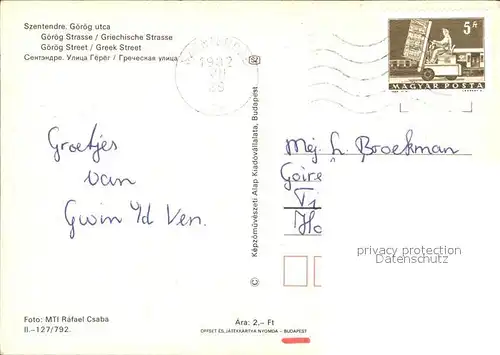 Szentendre. Görög utca
Görög Strasse / Griechische Strasse
Görög Street / Greek Street
Сентэндре. Улица Гёрёг / Греческая улица
1982
5 Ft
MAGYAR POSTA
Groetjes
van
Gwin v/d Ven.
Mej. L. Broekman
Goire
Ti
Ho
Képzőművészeti Alap Kiadóvállalata, Budapest
©
privacy protection
Dokumentenwert
Foto: MTI Ráfael Csaba
II.–127/792.
Ára: 2,– Ft
OFFSET ÉS JÁTÉKKÁRTYA NYOMDA – BUDAPEST